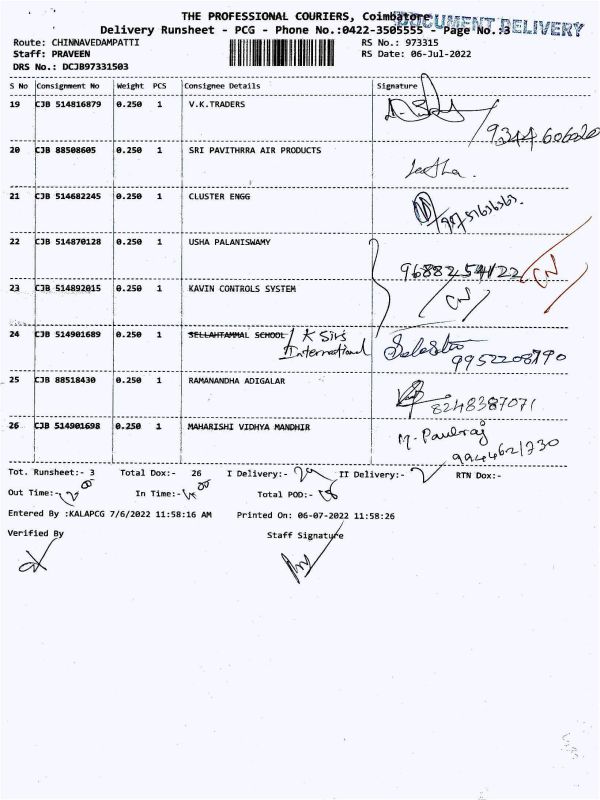 THE PROFESSIONAL COURIERS, Coimbatore
DOCUMENT DELIVERY
Delivery Runsheet - PCG - Phone No.:0422-3505555 - Page No.:3
Route: CHINNAVEDAMPATTI RS No.: 973315
Staff: PRAVEEN RS Date: 06-Jul-2022
DRS No.: DCJB97331503
S No Consignment No Weight PCS Consignee Details Signature
19 CJB 514816879 0.250 1 V.K.TRADERS
20 CJB 88508605 0.250 1 SRI PAVITHRRA AIR PRODUCTS
21 CJB 514682245 0.250 1 CLUSTER ENGG
22 CJB 514870128 0.250 1 USHA PALANISWAMY
23 CJB 514892015 0.250 1 KAVIN CONTROLS SYSTEM
24 CJB 514901689 0.250 1 SELLAHTAMMAL SCHOOL
International
25 CJB 88518430 0.250 1 RAMANANDHA ADIGALAR 8248387071
26 CJB 514901698 0.250 1 MAHARISHI VIDHYA MANDHIR M. Paulraj
Tot. Runsheet:- 3 Total Dox:- 26 I Delivery:- II Delivery:- RTN Dox:-
Out Time:- In Time:- Total POD:-
Entered By :KALAPCG 7/6/2022 11:58:16 AM Printed On: 06-07-2022 11:58:26
Verified By Staff Signature